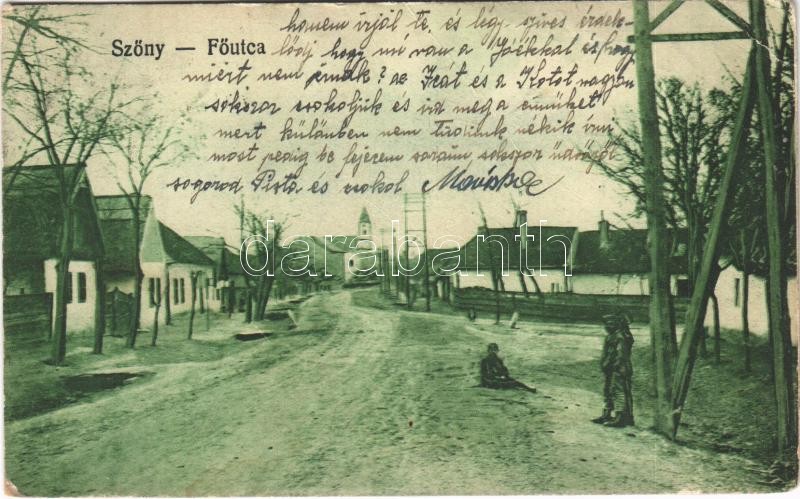 Szőny — Főutca
hanem írjál te, és légy szives érdek-
lődj hogy mi van a Joékkal és hogy
miért nem írnak? az Icát és a Kotot nagyon
sokszor csokoljuk és írd meg a cimüket
mert külömben nem tudunk nékik írni
most pedig be fejezem soraim sokszor üdvözöl
sogorod Pista és csokol
darabanth